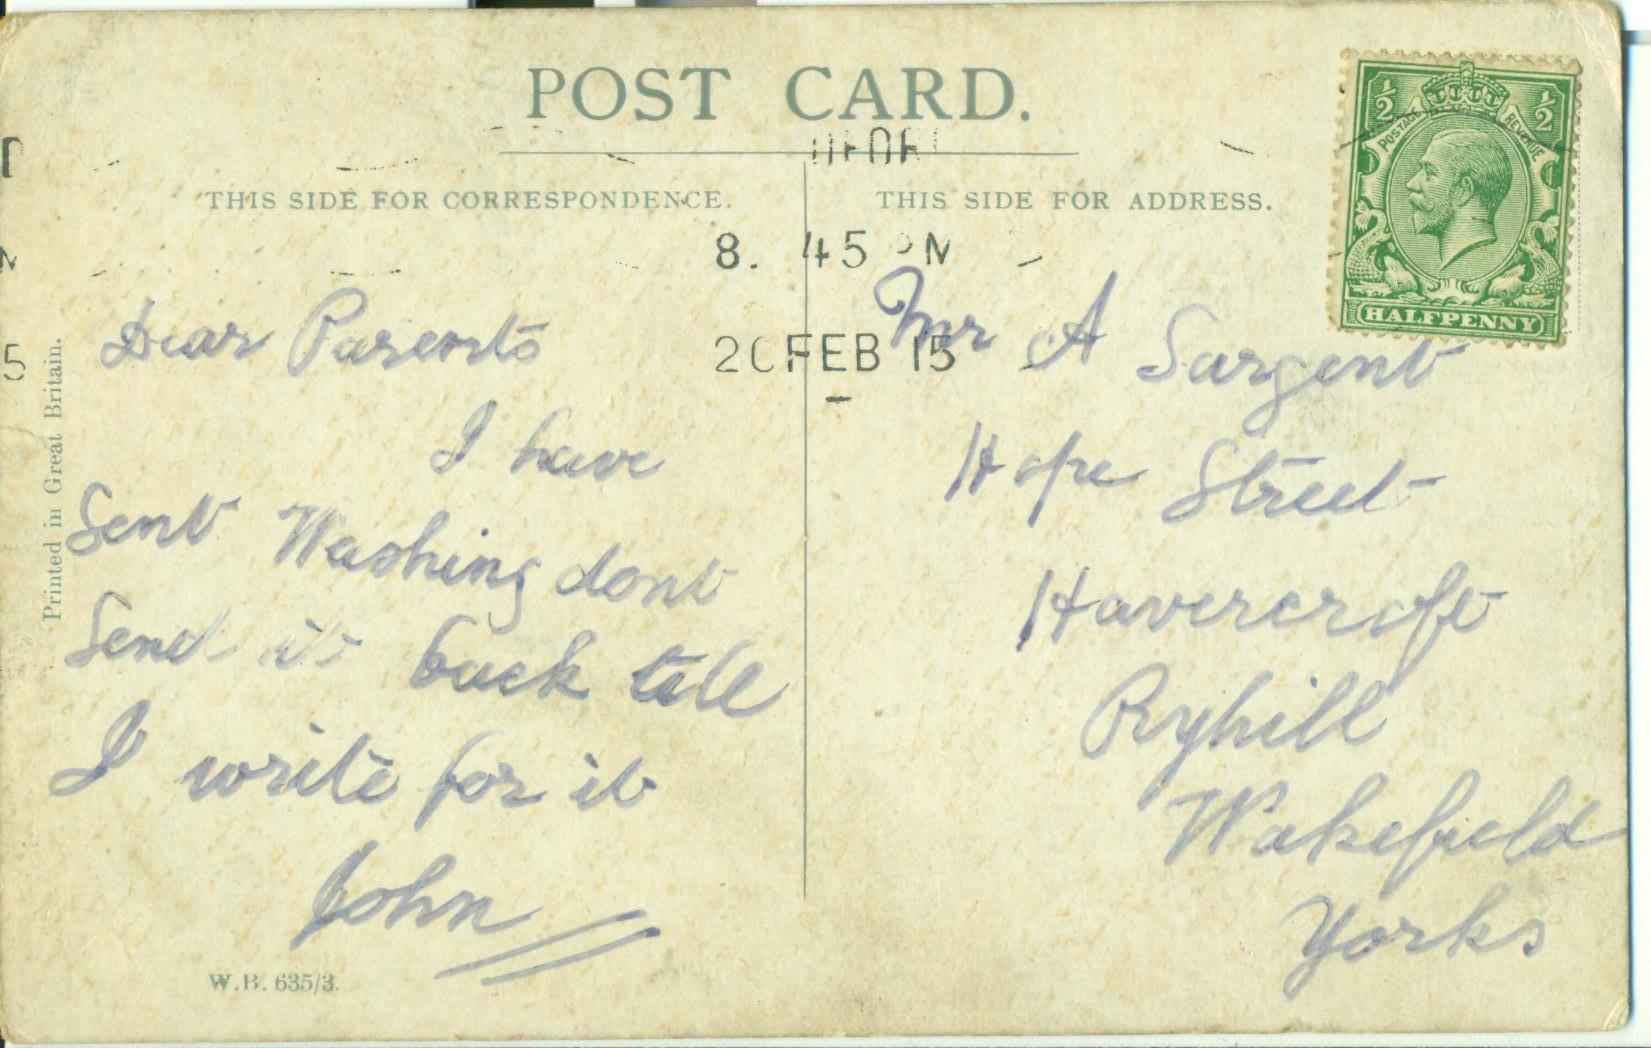 POST CARD.
THIS SIDE FOR CORRESPONDENCE.
THIS SIDE FOR ADDRESS.
8. 45 PM
FEB 15
½ ½
POSTAGE REVENUE
HALFPENNY
Printed in Great Britain.
Dear Parents
I have
Sent Washing dont
Send it back till
I write for it
John
W.B. 635/3.
Mr A Sargent
Hope Street
Havercroft
Ryhill
Wakefield
Yorks